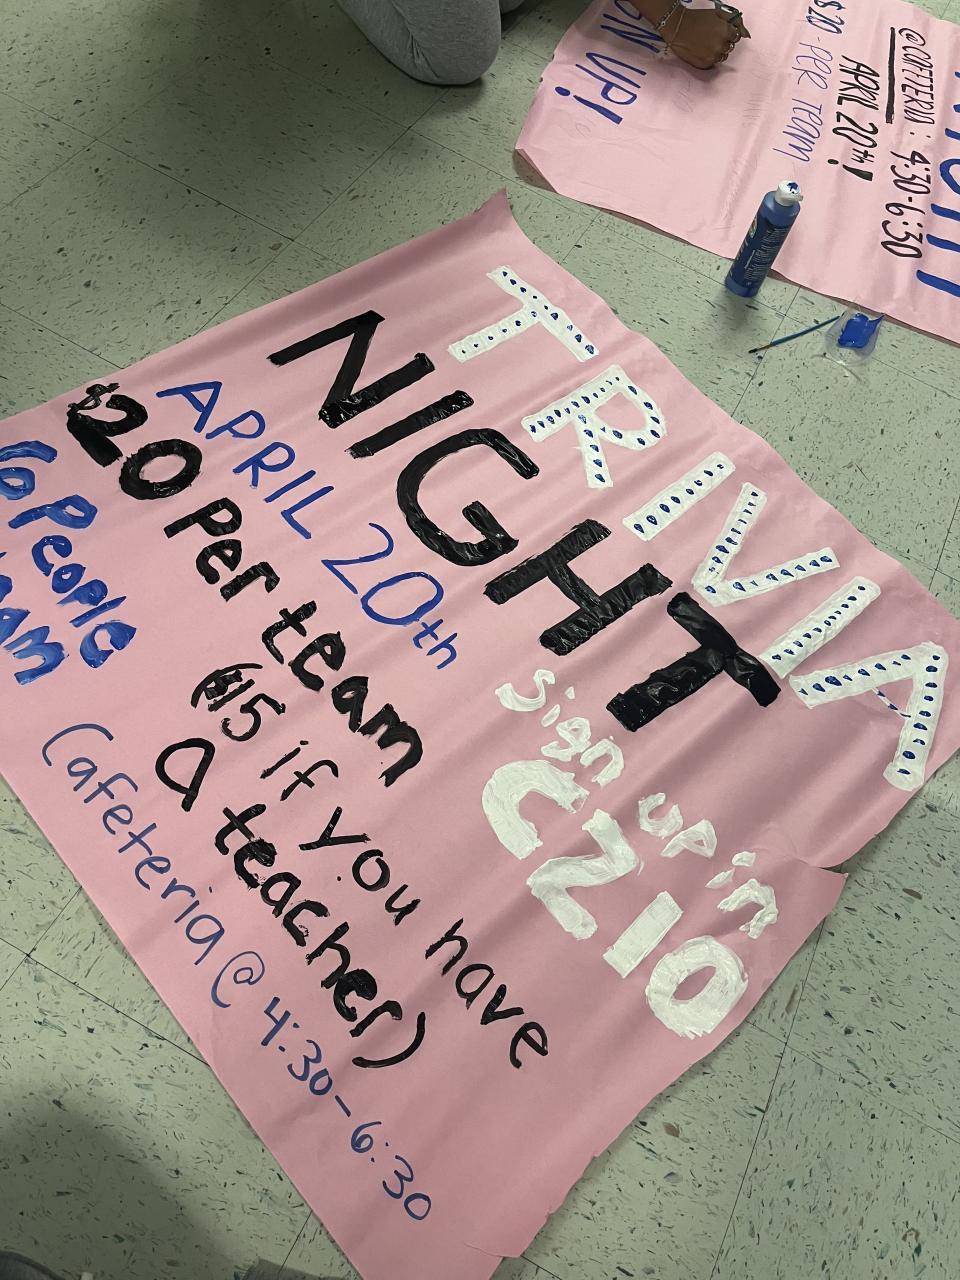 TRIVIA
NIGHT
sign up in
C210
APRIL 20th
$20 per team
($15 if you have
a teacher)
6 People
Cafeteria @ 4:30-6:30
@COFFETERIA: 4:30-6:30
APRIL 20th!
$20-PER TEAM
UP!